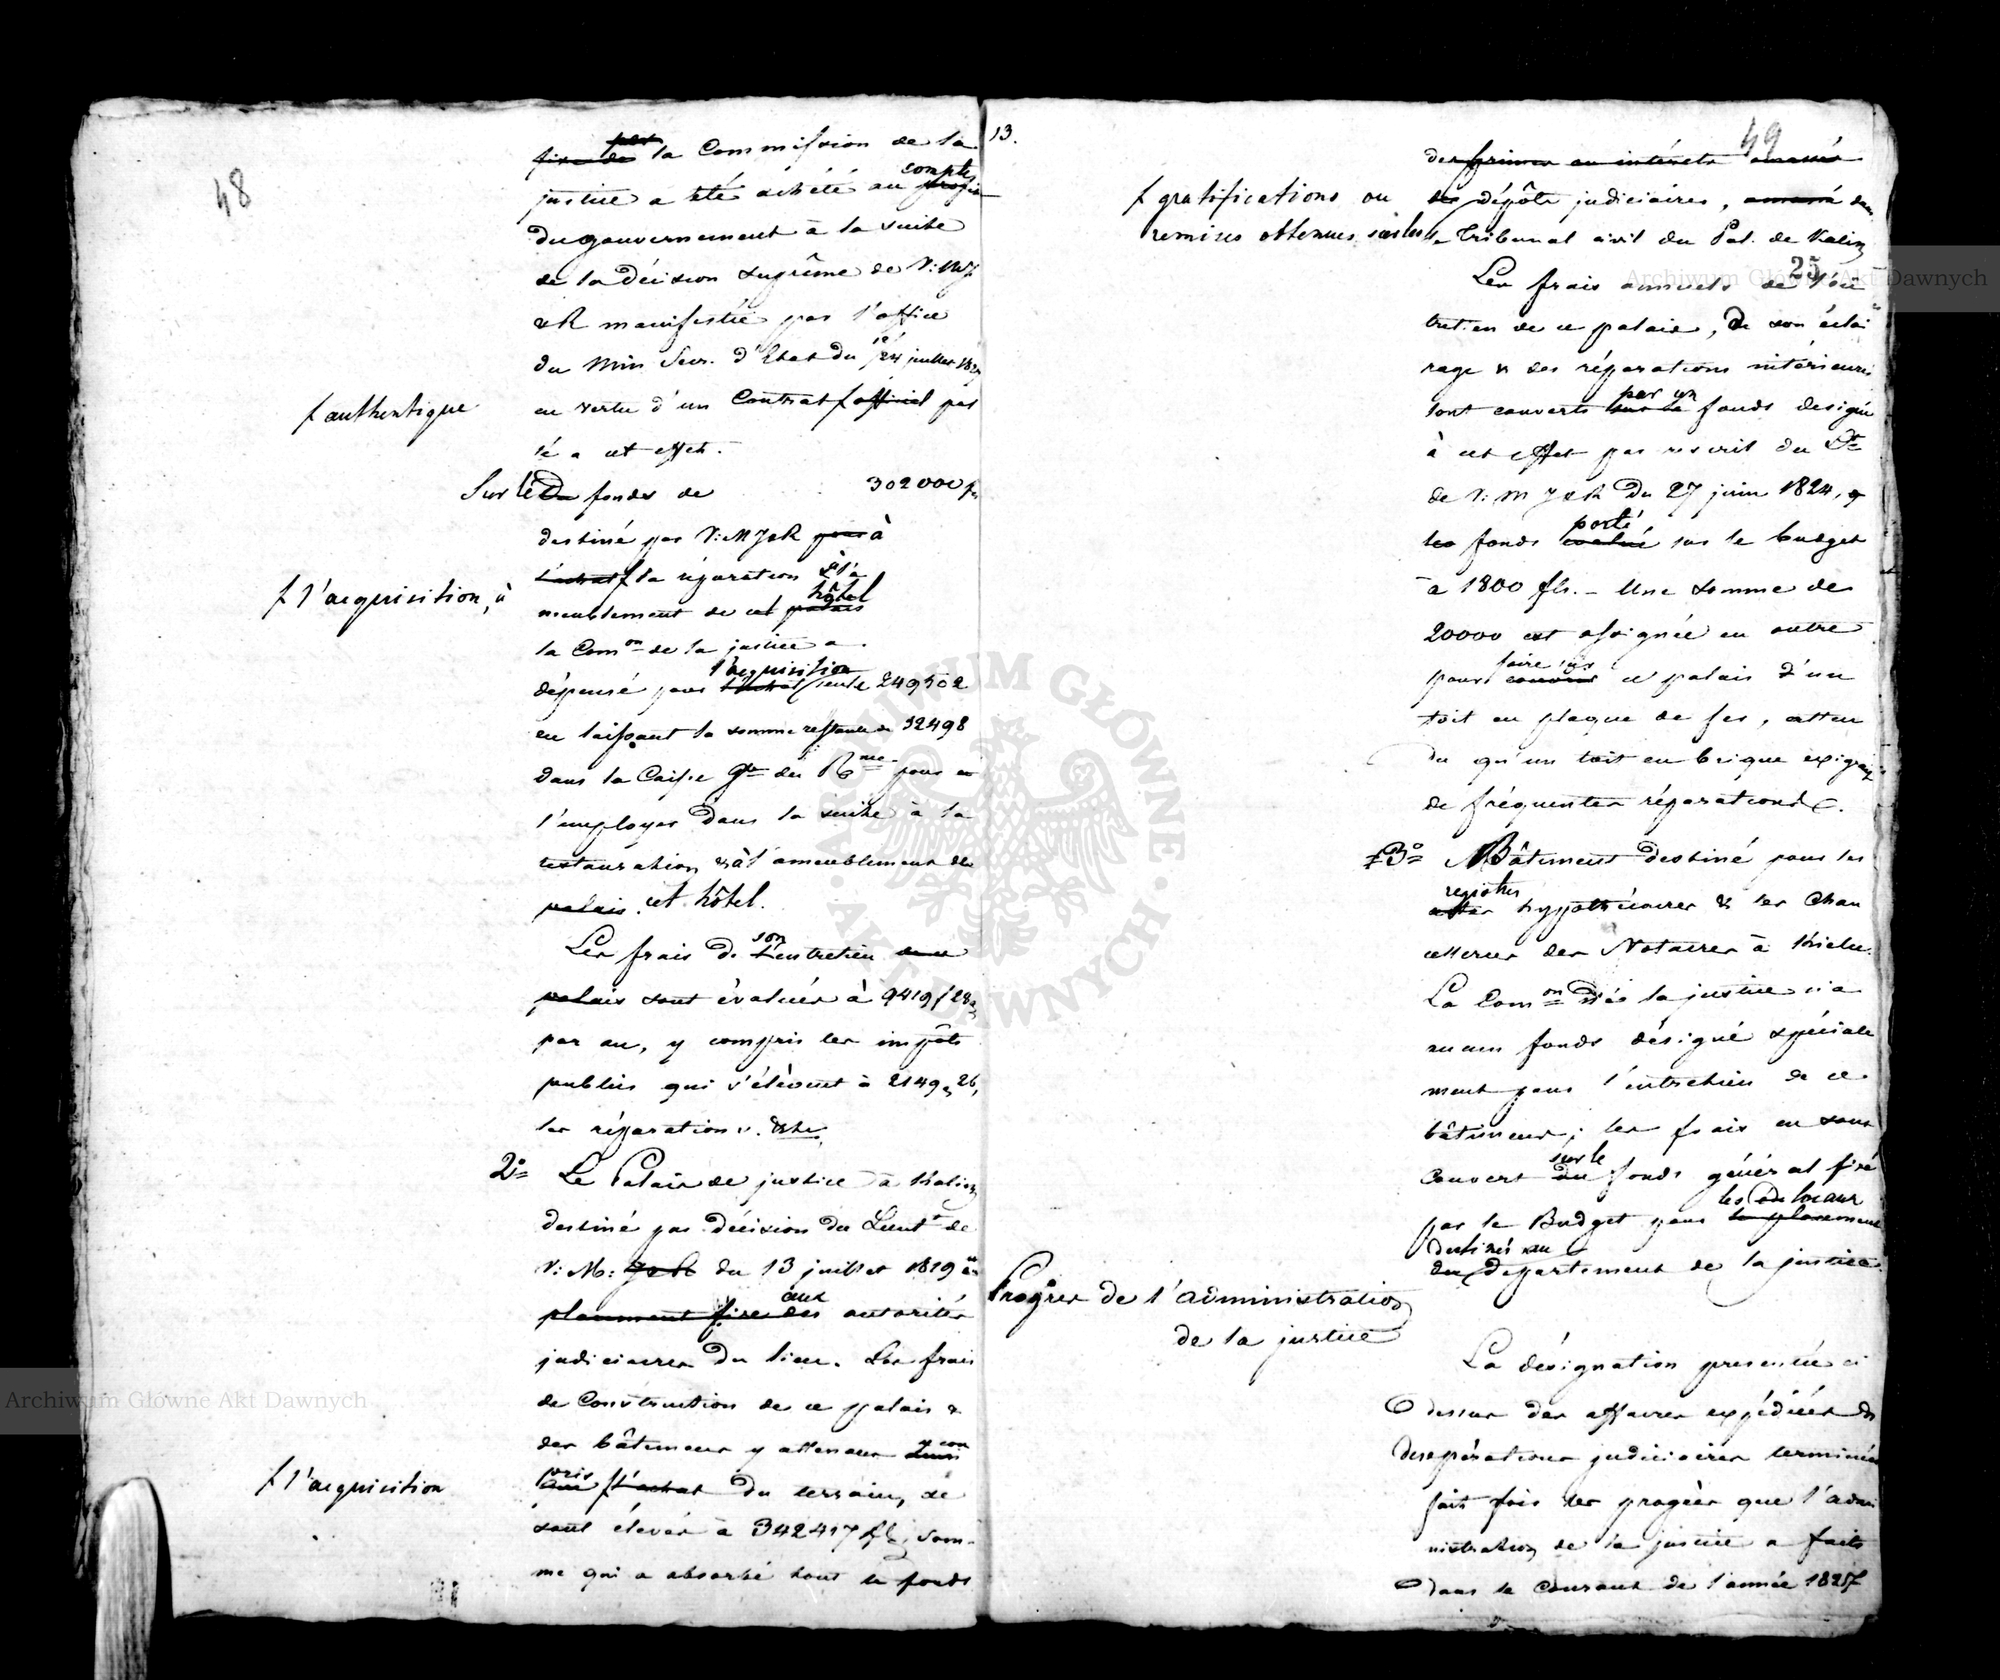 48
par
fixe des la Commission de la
compte
justice a été achété au profit
du gouvernement à la suite
de la décision suprême de V: M J
& R manifestée par l'office
du Min Secr. d'Etat du juillet
f authentique
en vertu d'un Contrat f officiel pas
sé a cet effet.
Sur le Du fonds de 302000 f
destiné par V: M J & R pour à
f l'acquisition, à
l'achat f la réparation & à l'a
hôtel
meublement de cet palais
la Comon de la justice a
l'acquisition
dépensé pour l'achat seule 249502
en laissant la somme restante de 52498
dans la Caisse Gle du Rme pour
l'employer dans la suite à la
restauration & à l'ameublement de
palais. cet hôtel.
son
Les frais de L'entretien de ce
palais sont évalués à 9419 f 28
par an, y compris les impôts
publics qui s'élèvent à 2149, 26,
les réparations. &tc.
2o Le Palais de justice à Kalisz
destiné par décision du Lieutt de
V: M: J & R du 13 juillet 1819
aux
placement fixe des autorités
judiciaires du lieu. Les frais
de Construction de ce palais &
des bâtimens y attenans
y com
f l'acquisition
pris f l'achat du terrain, se
sont élevés à 342417 fl, som-
me qui a absorbé tout le fonds
13.
49
des primes ou intérêts amassés
f gratifications ou
remises obtenues sur les
des dépôts judiciaires, amassé dans
le Tribunal civil du Pal. de Kalisz
25
Les frais annuels de l'en
tretien de ce palais, de son éclai
rage & des réparations intérieures
par un
sont couverts sur le fonds designé
à cet effet par rescrit du Lt
de V: M J & R du 27 juin 1824, &
porté
les fonds évalué sur le budget
à 1800 fls. – Une somme de
20000 est assignée en outre
pour couvrir ce palais d'un
toit en plaque de fer, atten
du qu'un toit en brique exigeait
de fréquentes réparations.
3o Bâtiment destiné pour les
registres
actes hypothécaires & les Chan
celleries des Notaires à Kielce.
La Comon de la justice n'a
aucun fonds désigné spéciale
ment pour l'entretien de ce
bâtiment; les frais en sont
sur le
couvert du fonds général fixé
les locaux
par le Budget pour le placement
destinés au
du département de la justice.
Progrès de l'administration
de la justice
La désignation presentée ci
dessus des affaires expédiées &
des opérations judiciaires terminées
fait fois les progrès que l'admi
nistration de la justice a faits
dans le Courant de l'année 1825
f l'acquisition
Archiwum Główne Akt Dawnych
Archiwum Główne Akt Dawnych
ARCHIWUM GŁÓWNE · AKT DAWNYCH ·